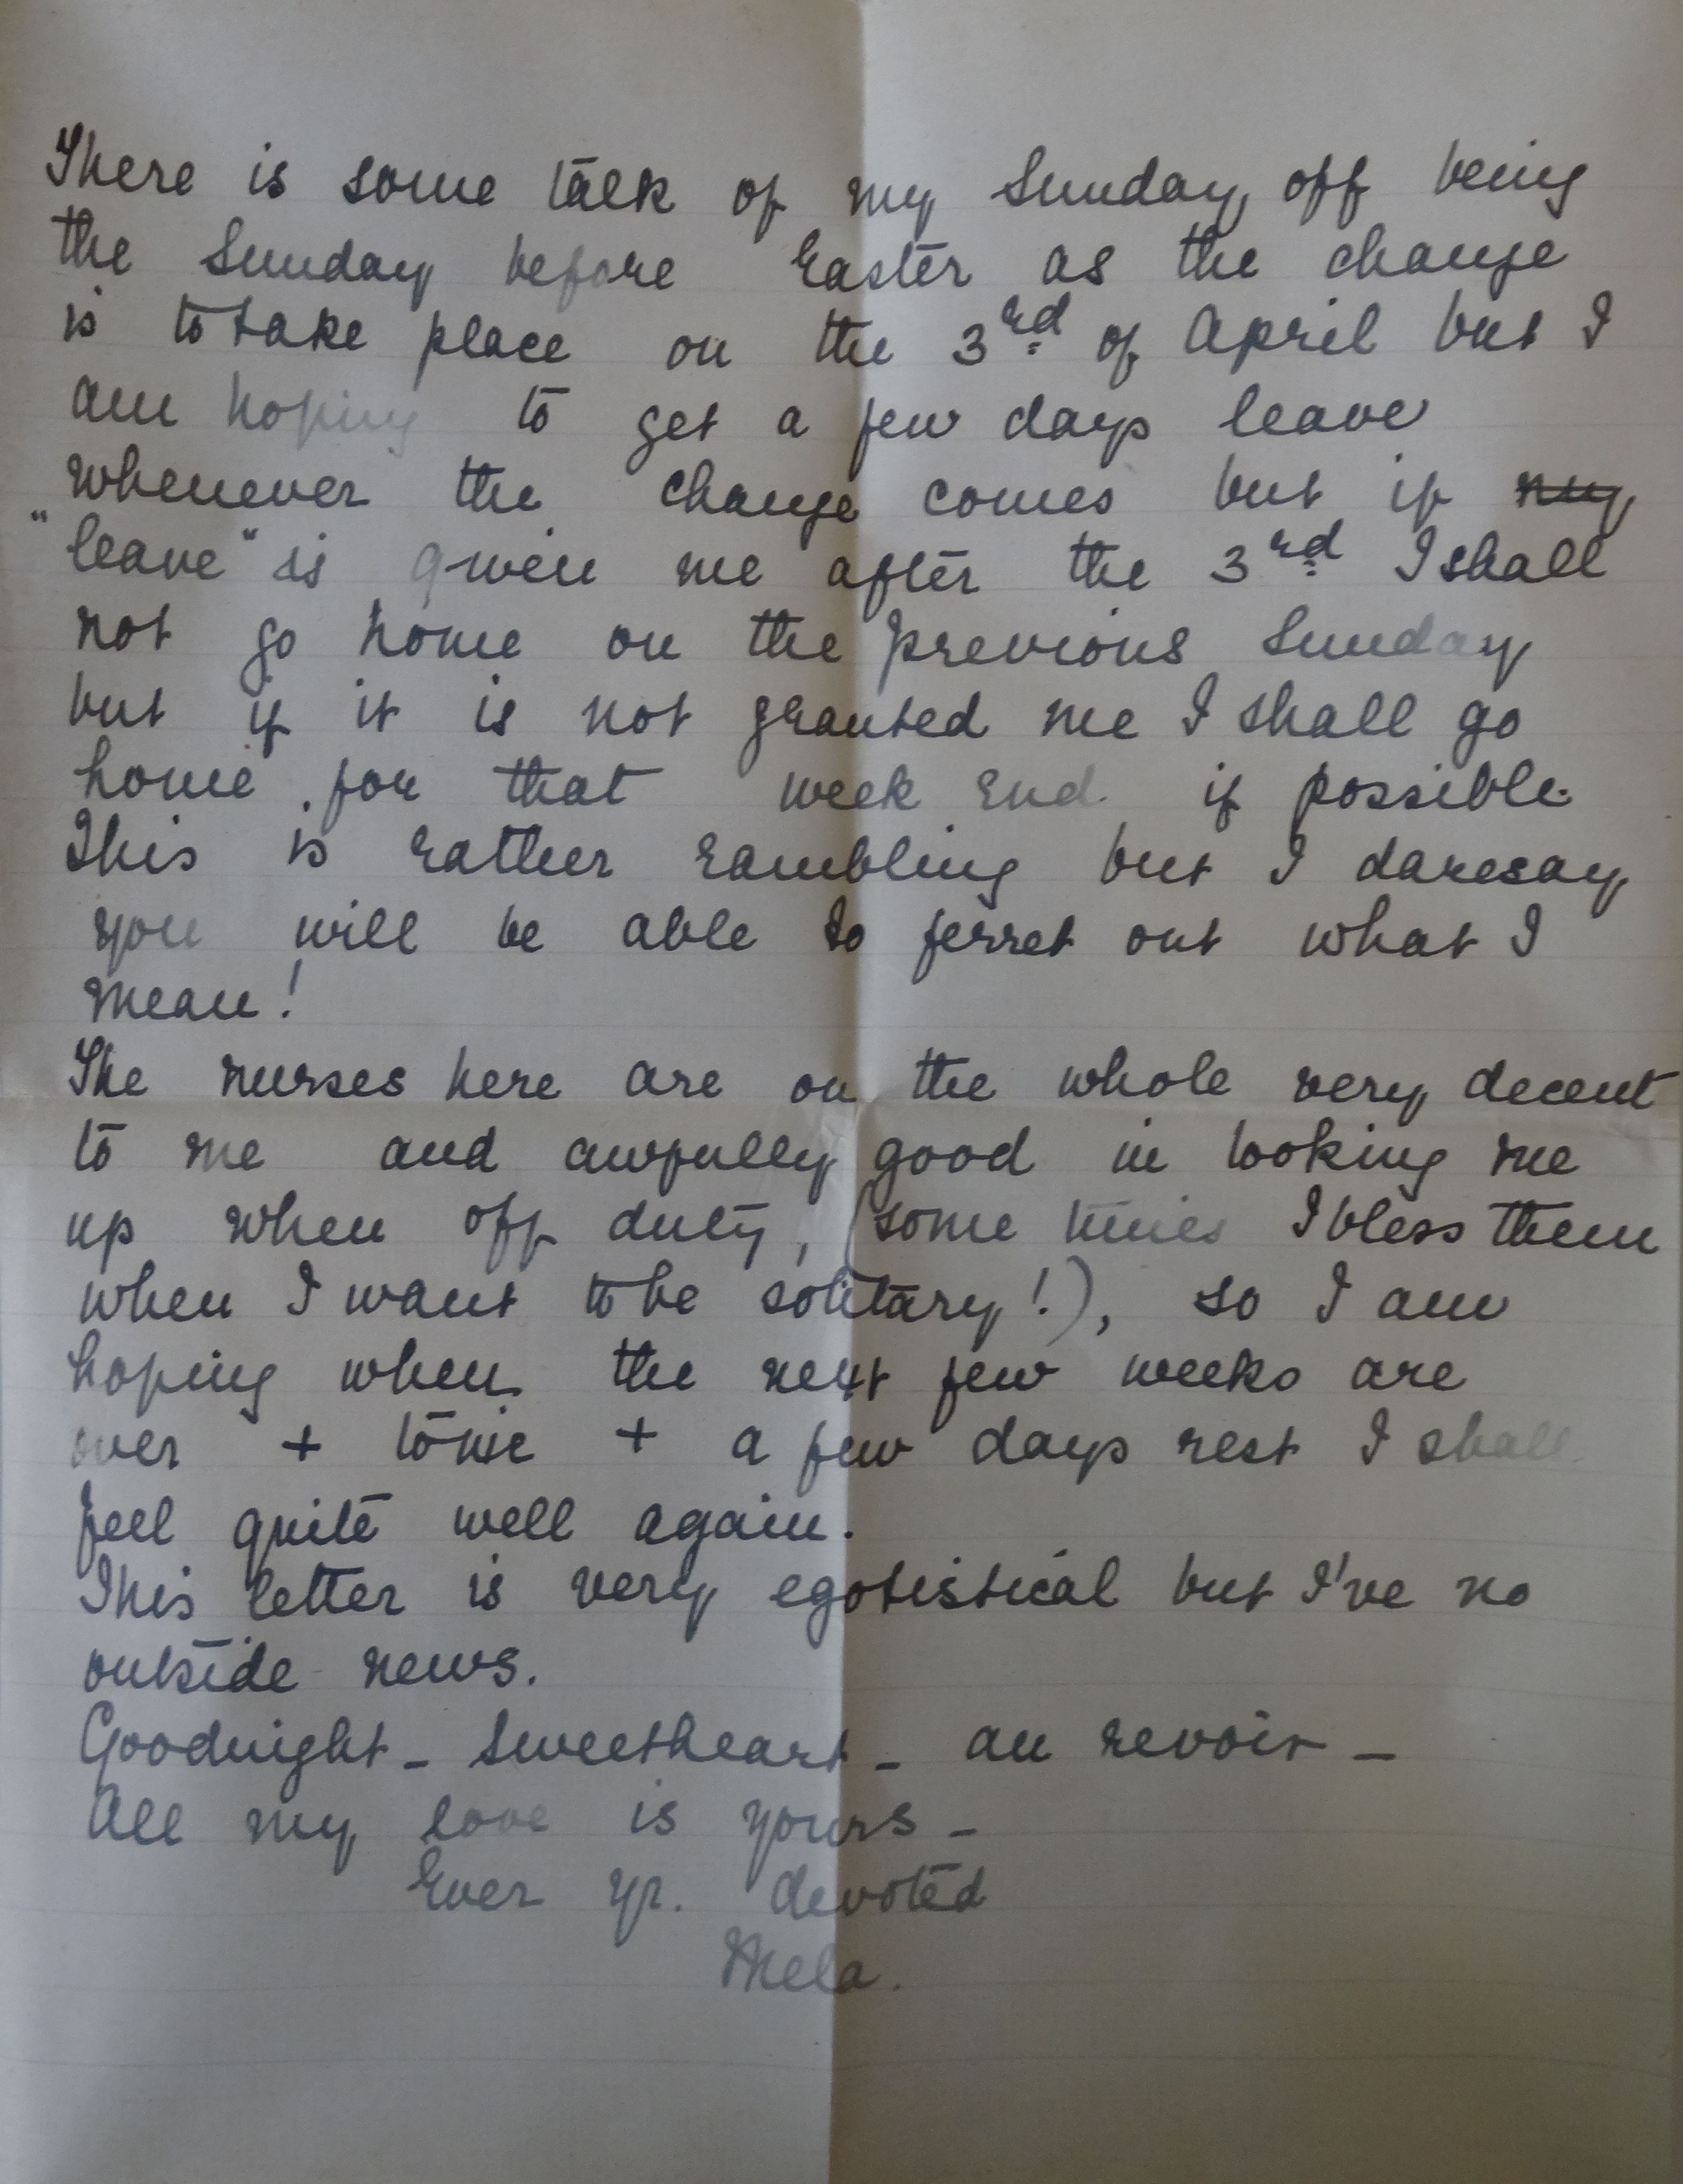 There is some talk of my Sunday off being
the Sunday before Easter as the change
is to take place on the 3rd of April but I
am hoping to get a few days leave
whenever the change comes but if ~~my~~
"leave" is given me after the 3rd I shall
not go home on the previous Sunday
but if it is not granted me I shall go
home for that week end if possible.
This is rather rambling but I daresay
you will be able to ferret out what I
mean!
The nurses here are on the whole very decent
to me and awfully good in looking me
up when off duty, (some times I bless them
when I want to be solitary!), so I am
hoping when the next few weeks are
over + tonic + a few days rest I shall
feel quite well again.
This letter is very egotistical but I've no
outside news.
Goodnight - Sweetheart - au revoir -
All my love is yours -
Ever yr. devoted